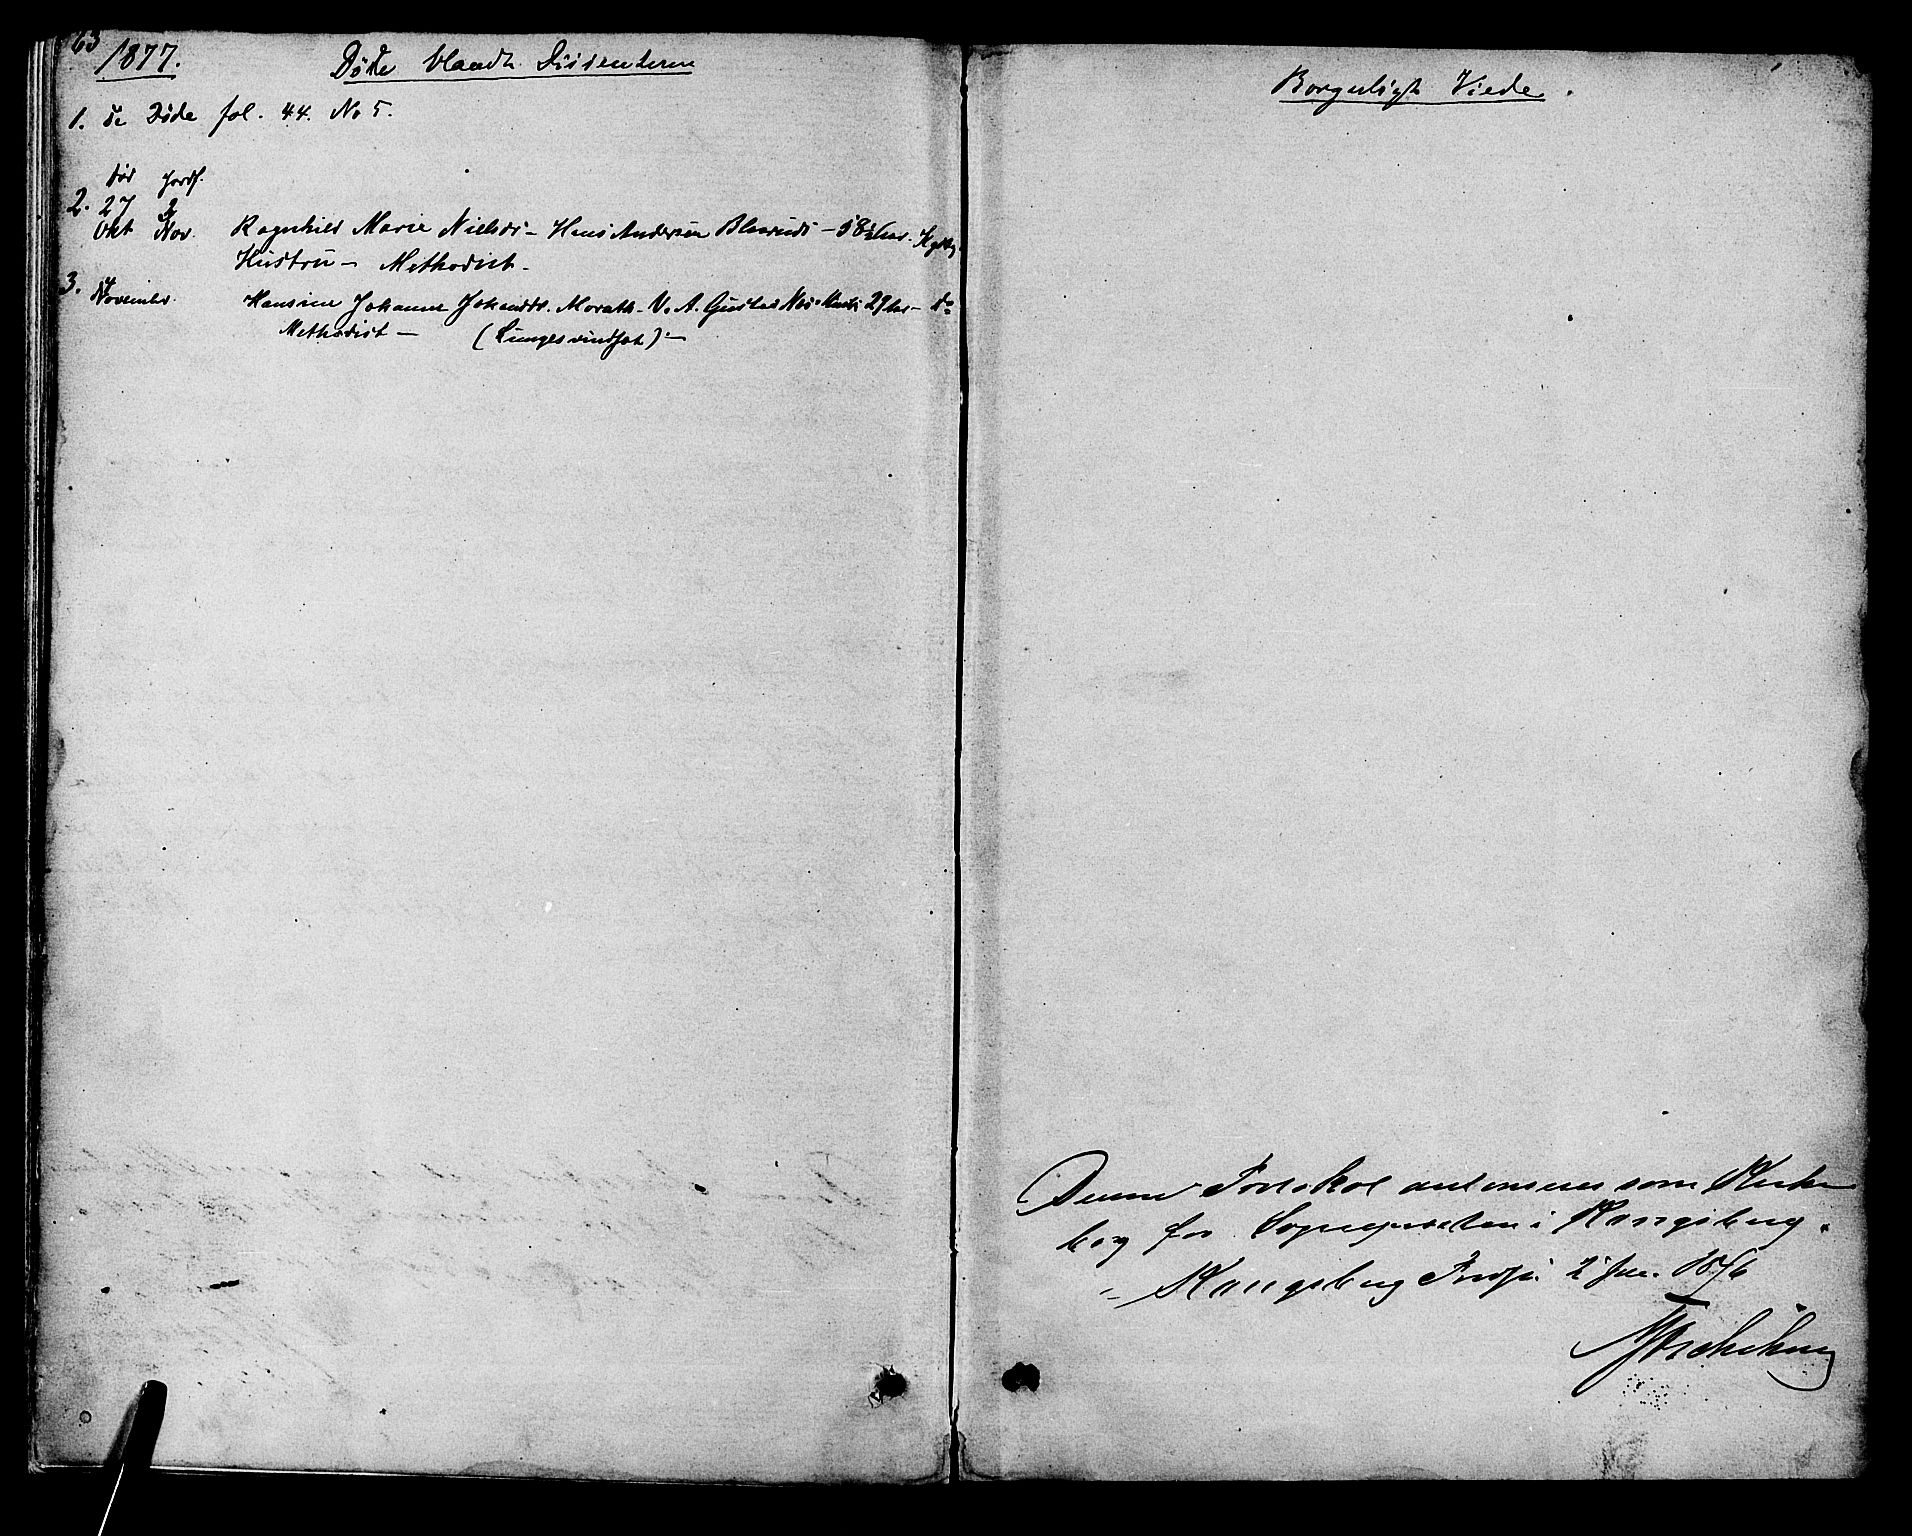 63
1877.
Døde blandt Dissenterne
1. Se Døde fol. 44. No 5.
Død Jordf.
2. 27 2
Okt Nov. Ragnhild Marie Nielsdr - Hans Andersen Blaaruds - 58½ Aar. Kgsbg.
Hustru - Methodist.
3. 4
November. Hansine Johanne Johansdr. Morath - V. A. Gustav Hustru 29 Aar - do
Methodist - (Lungesvindsot) -
Borgerligt Viede.
Denne Protokol autoriseres som Kirke
bog for Sognepræsten i Kongsberg.
Kongsberg Prosti 2 Jan. 1876